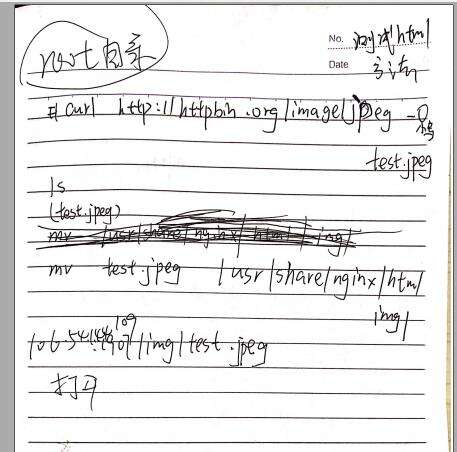 root目录
No. 测试html
Date
# curl http://httpbin.org/image/jpeg -O
test.jpeg
ls
(test.jpeg)
mv /usr/share/nginx/html/img/
mv test.jpeg /usr/share/nginx/html/
img/
/img/test.jpeg
打开